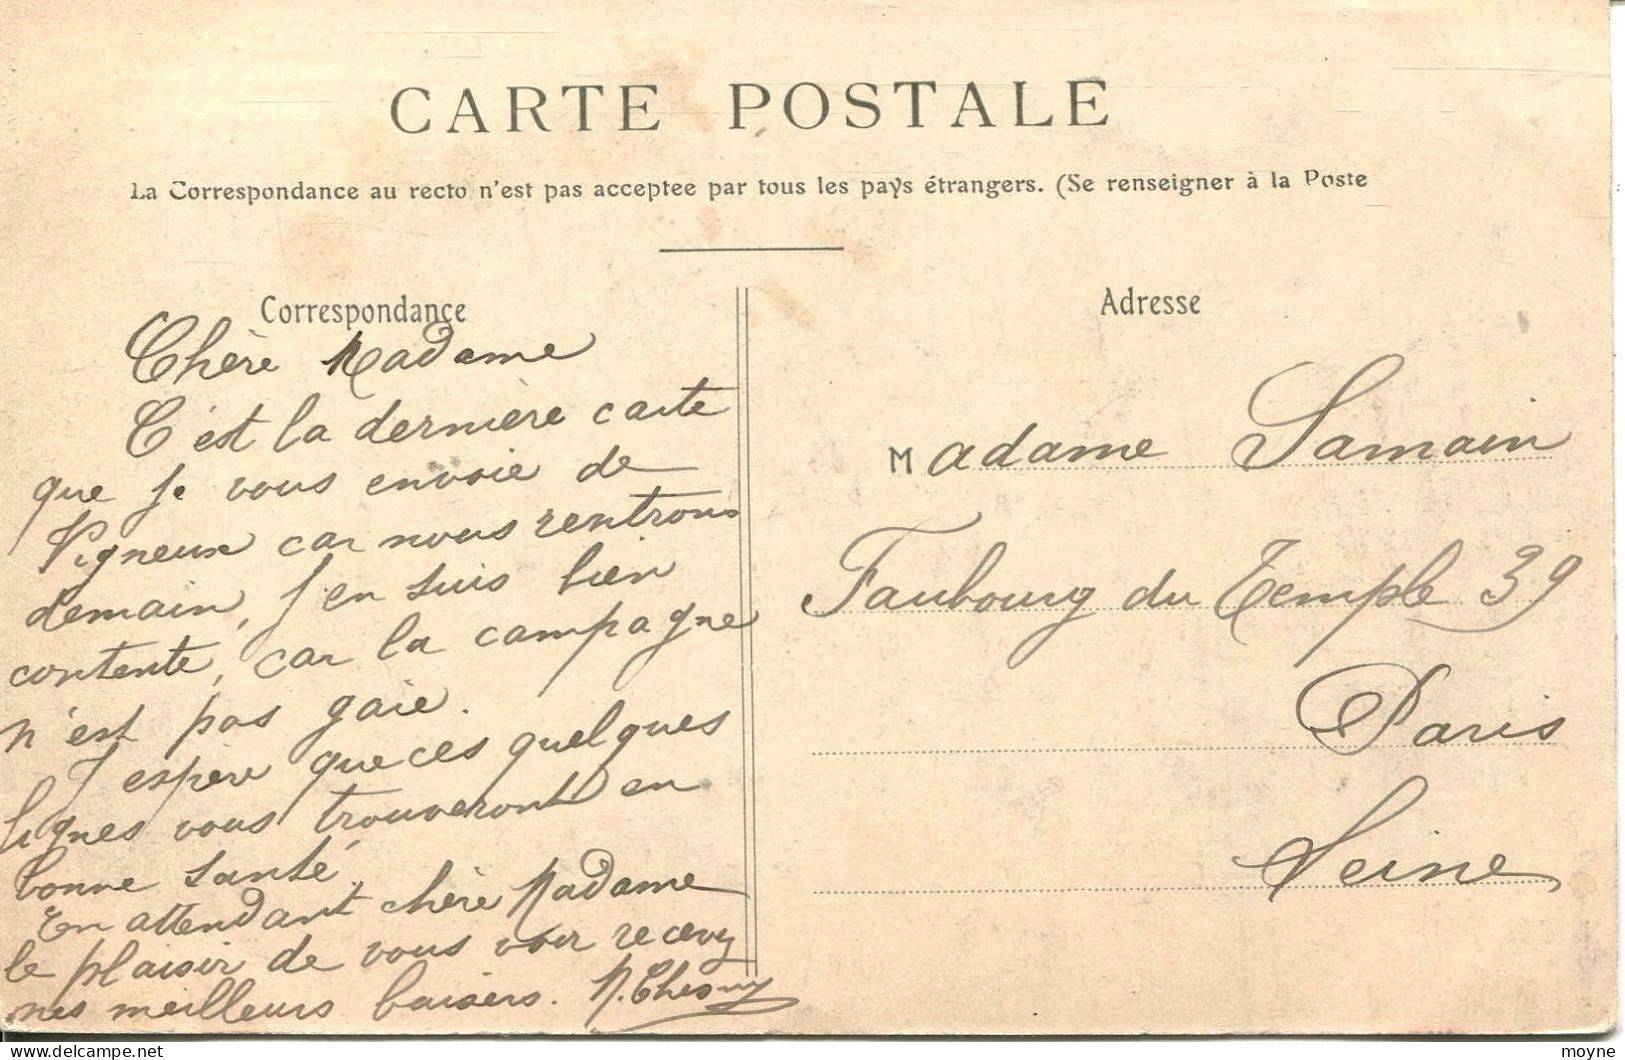 CARTE POSTALE
La Correspondance au recto n'est pas acceptee par tous les pays étrangers. (Se renseigner à la Poste
Correspondance
Chère Madame
C'est la dernière carte
que je vous envoie de
Vigneux car nous rentrons
demain, j'en suis bien
contente, car la campagne
n'est pas gaie.
J'espère que ces quelques
lignes vous trouveront en
bonne santé.
En attendant chère Madame
le plaisir de vous voir recevez
mes meilleurs baisers.
Adresse
Madame Samain
Faubourg du Temple 39
Paris
Seine
moyne